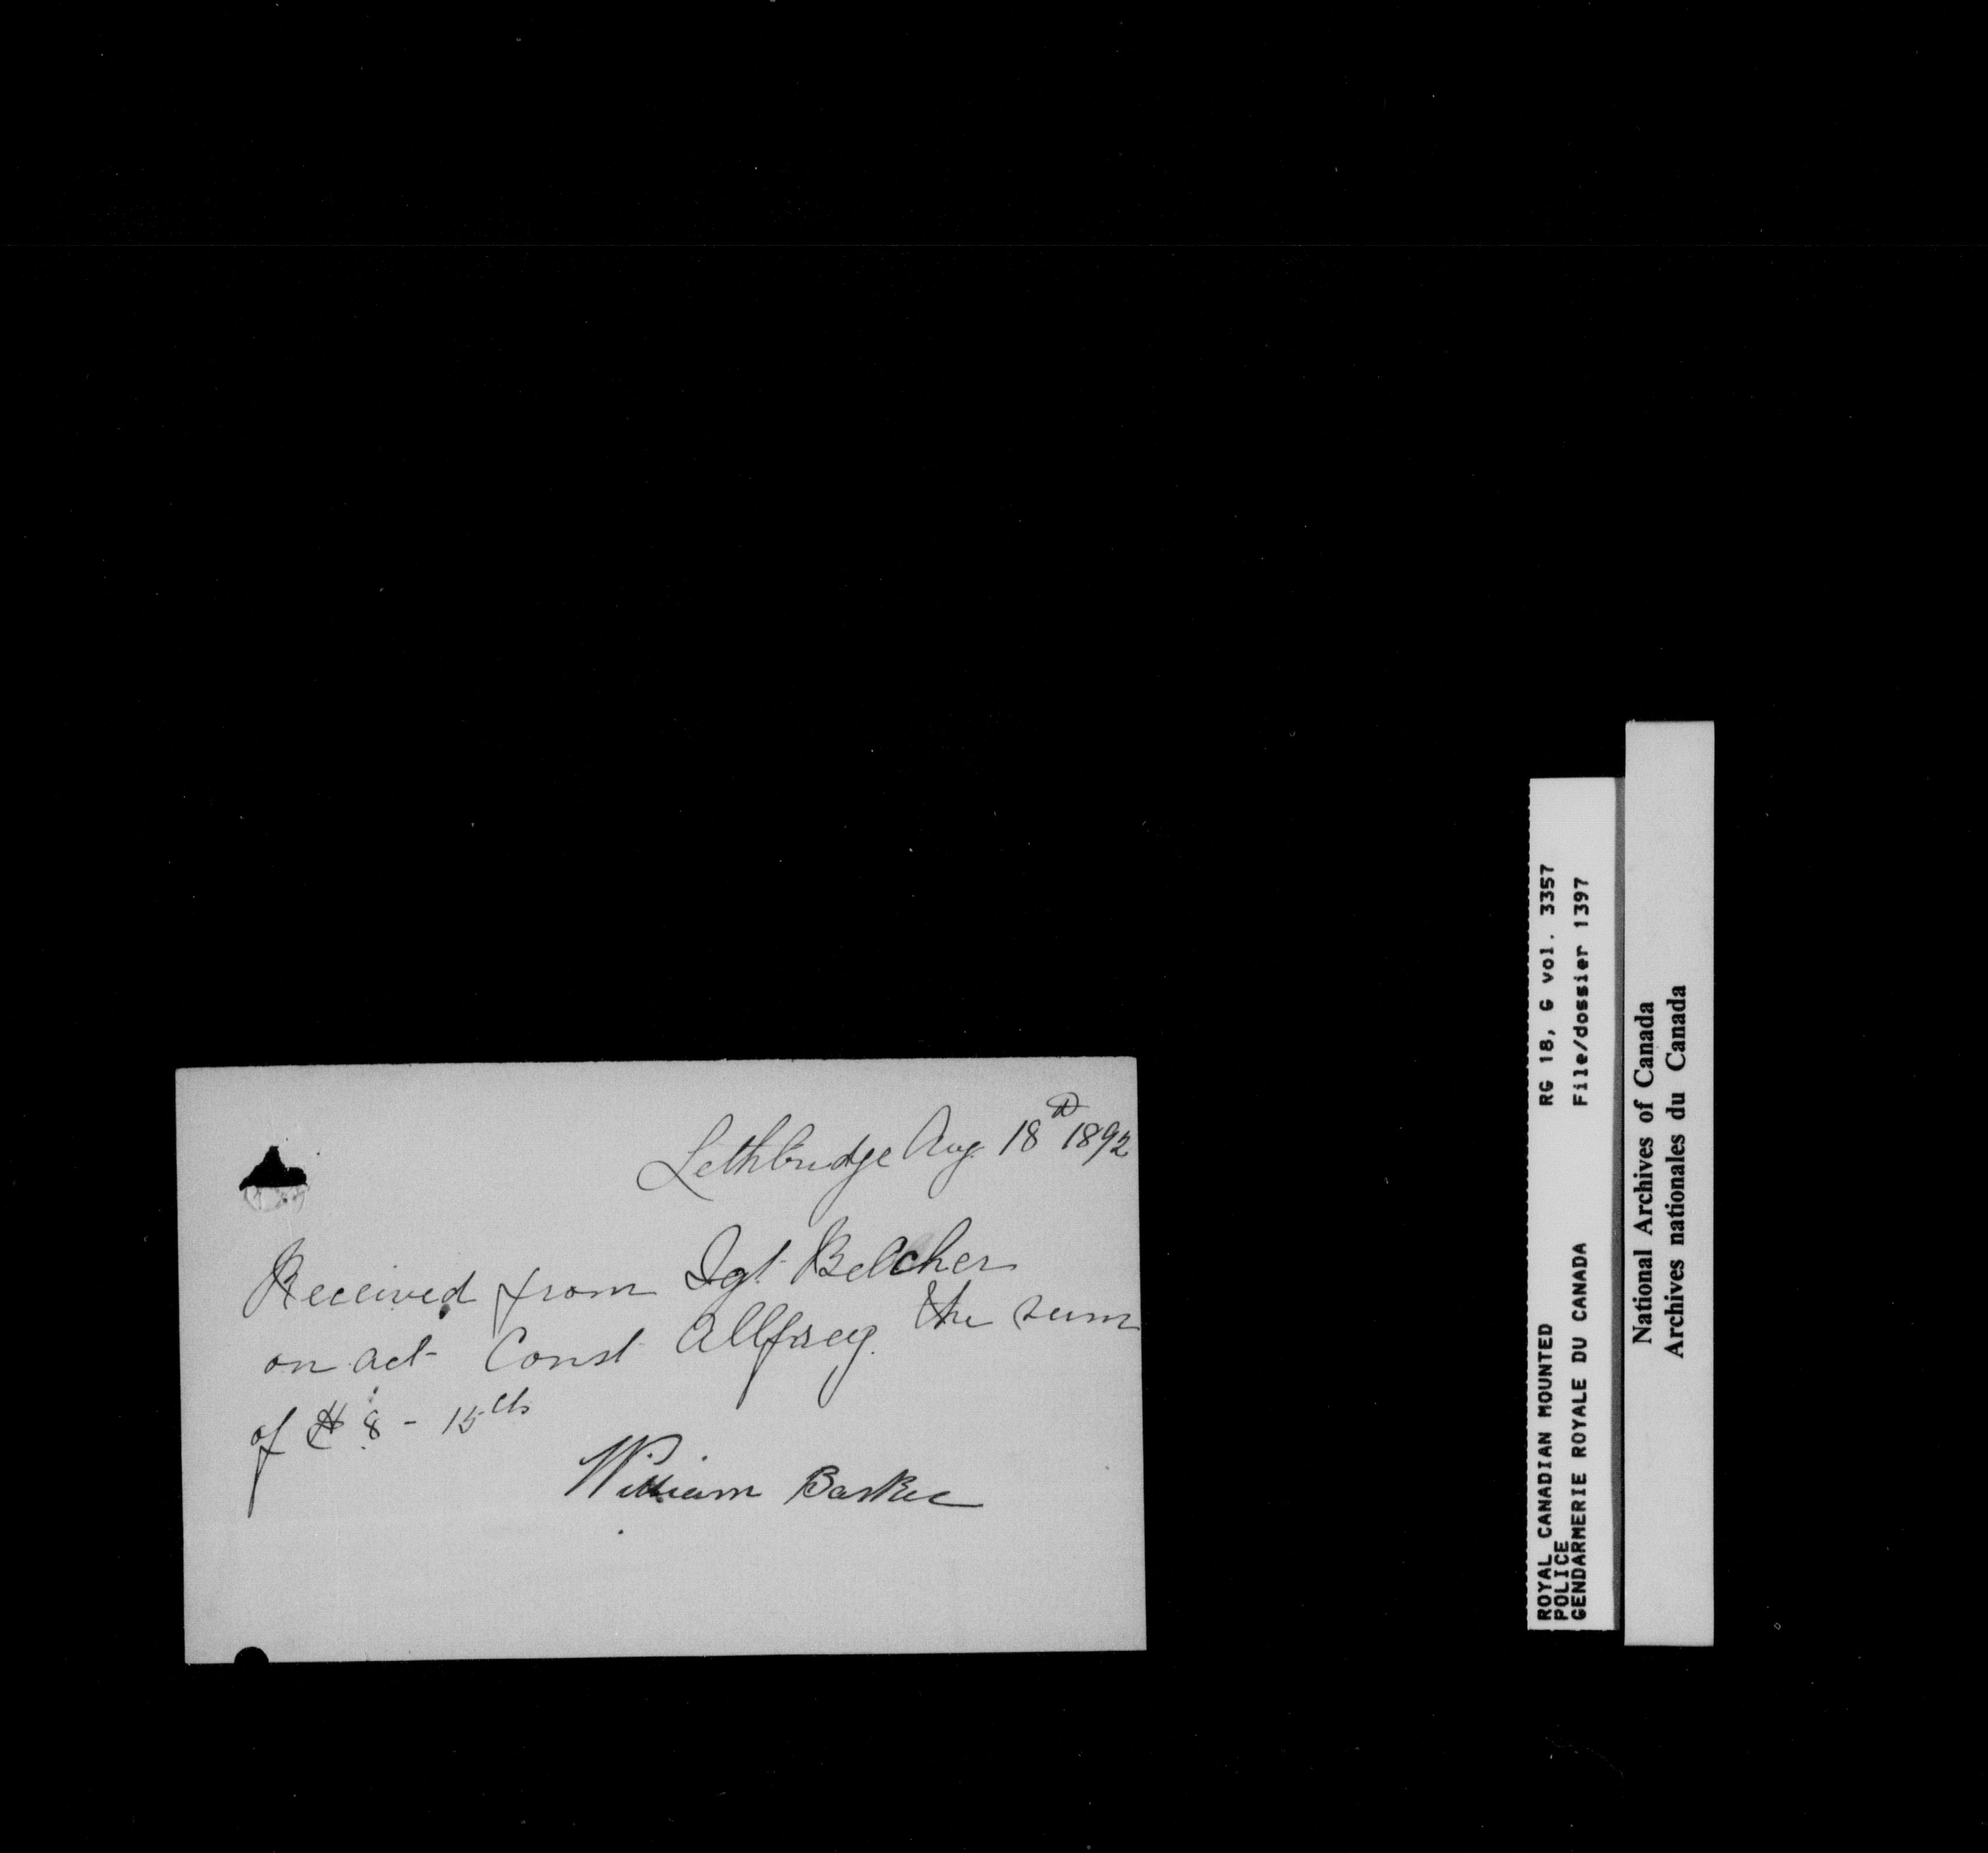 Lethbridge Aug 18th 1892
Received from Sgt Belcher
on act Const Allfrey. the sum
of $8 - 15cts
William Barker
ROYAL CANADIAN MOUNTED RG 18, G vol. 3357
POLICE
GENDARMERIE ROYALE DU CANADA File/dossier 1397
National Archives of Canada
Archives nationales du Canada